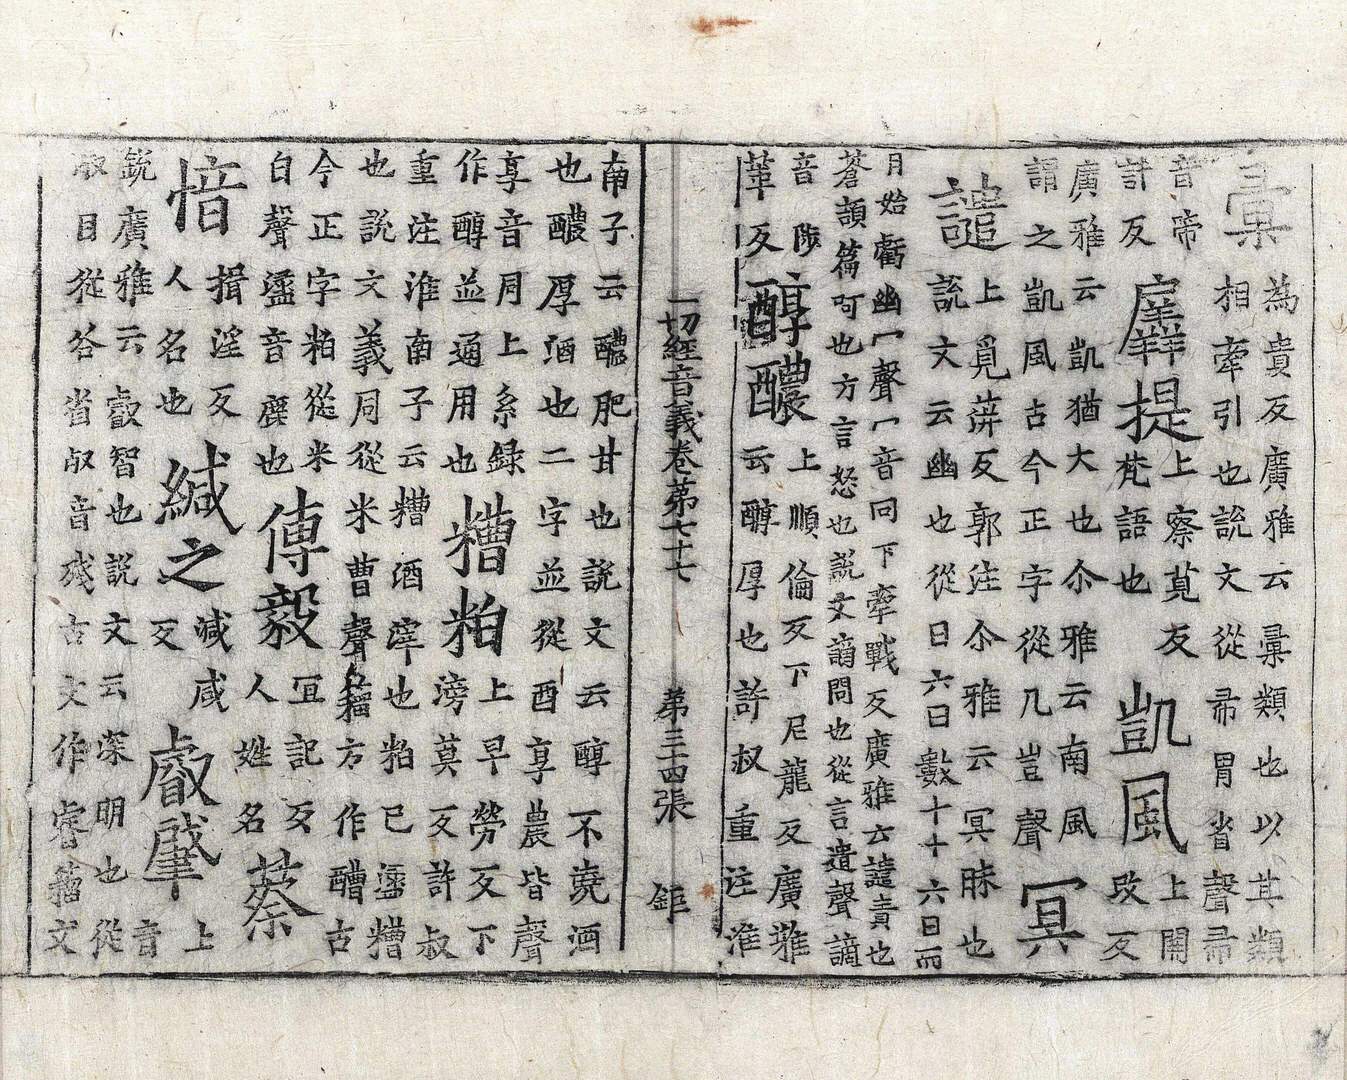 彙
為貴反廣雅云彚類也以其類
相牽引也說文從㣇胃省聲㣇
音帝
計反
羼提
上察莧反
梵語也
凱風
上開
改反
廣雅云凱猶大也尒雅云南風
謂之凱風古今正字從几豈聲
冥
譴
上覓蓱反郭注尒雅云冥昧也
說文云幽也從日六日數十十六日而
月始虧幽冖聲冖音同下牽戰反廣雅云譴責也
蒼頡篇呵也方言怒也說文謫問也從言遣聲謫
音陟
革反
醇醲
上順倫反下尼龍反廣雅
云醇厚也許叔重注淮
一切經音義卷苐七十七 苐三四張 鉅
南子云醲肥甘也說文云醇不澆酒
也醲厚酒也二字並從酉享農皆聲
享音同上糸録
作醇並通用也
糟粕
上早勞反下
滂莫反許叔
重注淮南子云糟酒滓也粕已盪糟
也說文義同從米曹聲籀方作醩古
今正字粕從米
白聲盪音麃也
傅毅
冝記反
人姓名
蔡
愔
揖淫反
人名也
緘之
減咸
反
叡肇
上
音
銳廣雅云叡智也說文云深明也從
㕡目從谷省㕡音殘古文作睿籀文